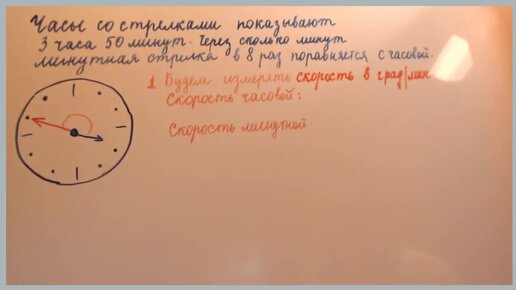 Часы со стрелками показывают
3 часа 50 минут. Через сколько минут
минутная стрелка в 8 раз поравняется с часовой.
1 Будем измерять скорость в град/мин.
Скорость часовой:
Скорость минутной